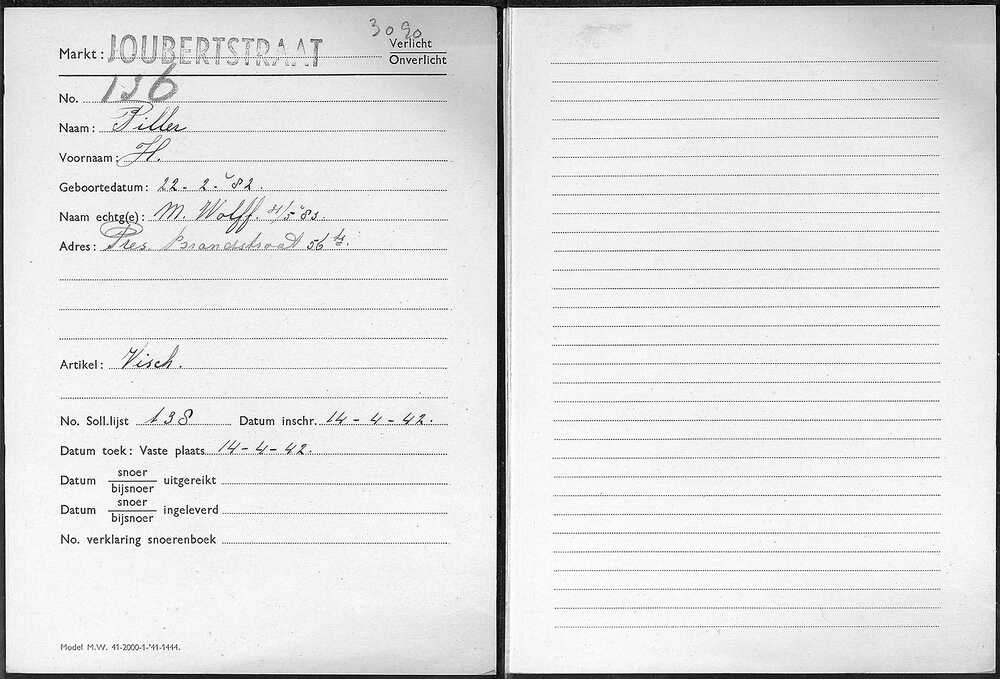 3090
Markt: JOUBERTSTRAAT Verlicht
Onverlicht
No. 136
Naam: Piller
Voornaam: H.
Geboortedatum: 22-2-'82.
Naam echtg(e): M. Wolff. 31/5 '83.
Adres: Pres. Brandstraat 56
Artikel: Visch.
No. Soll.lijst 138 Datum inschr. 14-4-42.
Datum toek: Vaste plaats 14-4-42.
Datum snoer
bijsnoer uitgereikt
Datum snoer
bijsnoer ingeleverd
No. verklaring snoerenboek
Model M.W. 41-2000-1-'41-1444.